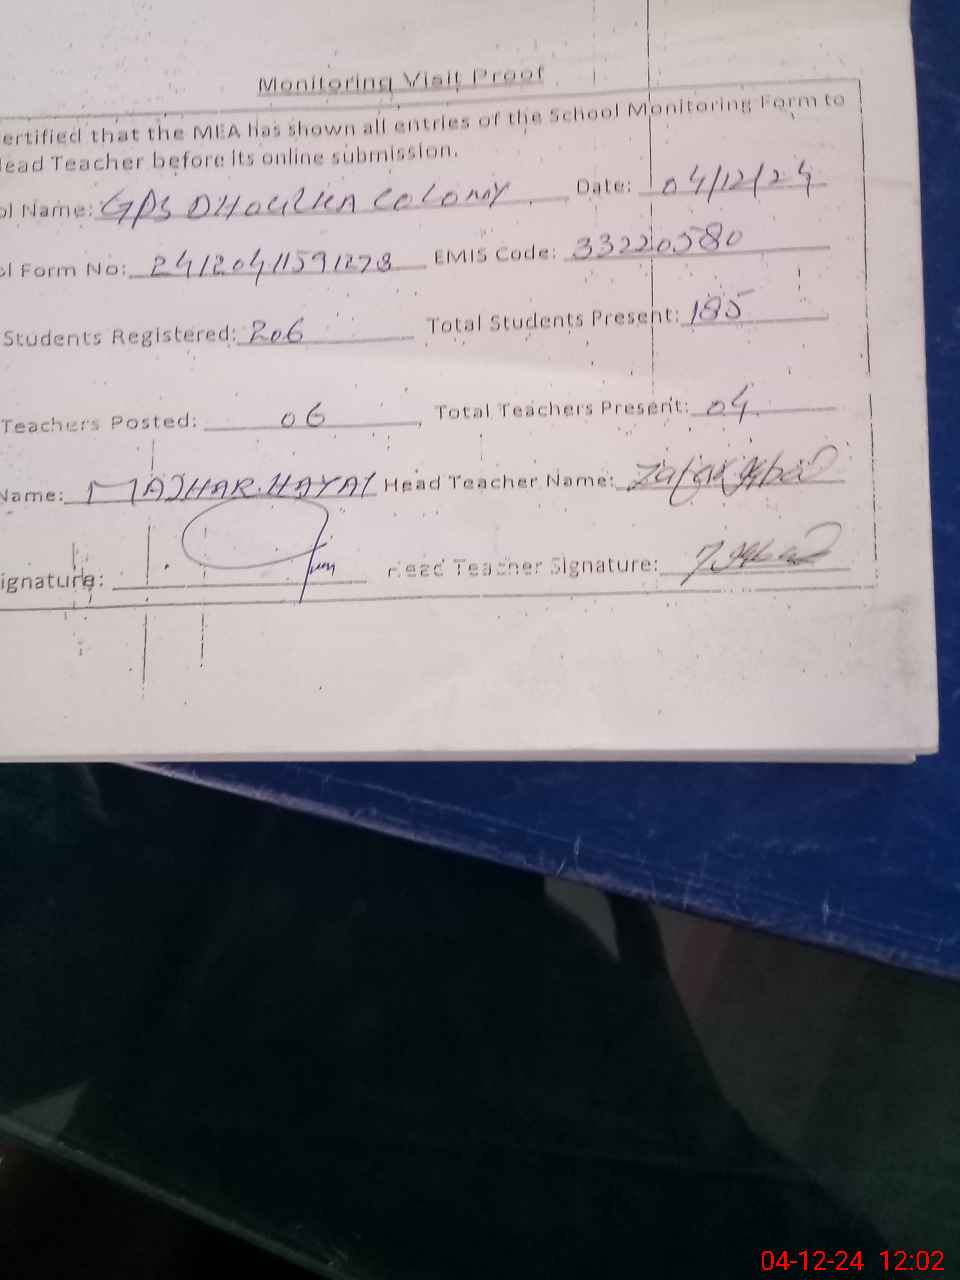 Monitoring Visit Proof
ertified that the MEA has shown all entries of the School Monitoring Form to
lead Teacher before its online submission.
ol Name: GPS DHOULKA COLONY Date: 04/12/24
ol Form No: 24120411591273 EMIS Code: 33220580
Students Registered: 206 Total Students Present: 185
Teachers Posted: 06 Total Teachers Present: 04
Name: MAZHAR HAYAT Head Teacher Name: Zafar Iqbal
ignature: Head Teacher Signature:
04-12-24 12:02